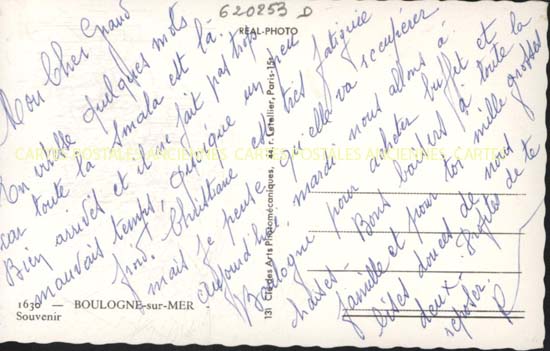 620253 D
REAL-PHOTO
Mon Cher Grand
En vitesse quelques mots
car toute la smala est là.
Bien arrivés et il ne fait pas trop
mauvais temps, quoique un peu
froid. Christiane est très fatiguée
mais je pense qu'elle va récupérer
Aujourd'hui mardi nous allons à
Boulogne pour acheter buffet et
chaises - Bons baisers à toute la
famille et pour toi mille grosses
bises douces de nous
deux - Profites de te
reposer.
R
CARTES POSTALES ANCIENNES CARTES POSTALES ANCIENNES CARTES
131 Cie des Arts Photomécaniques, 44, r. Letellier, Paris-15e
1630 — BOULOGNE-sur-MER -
Souvenir